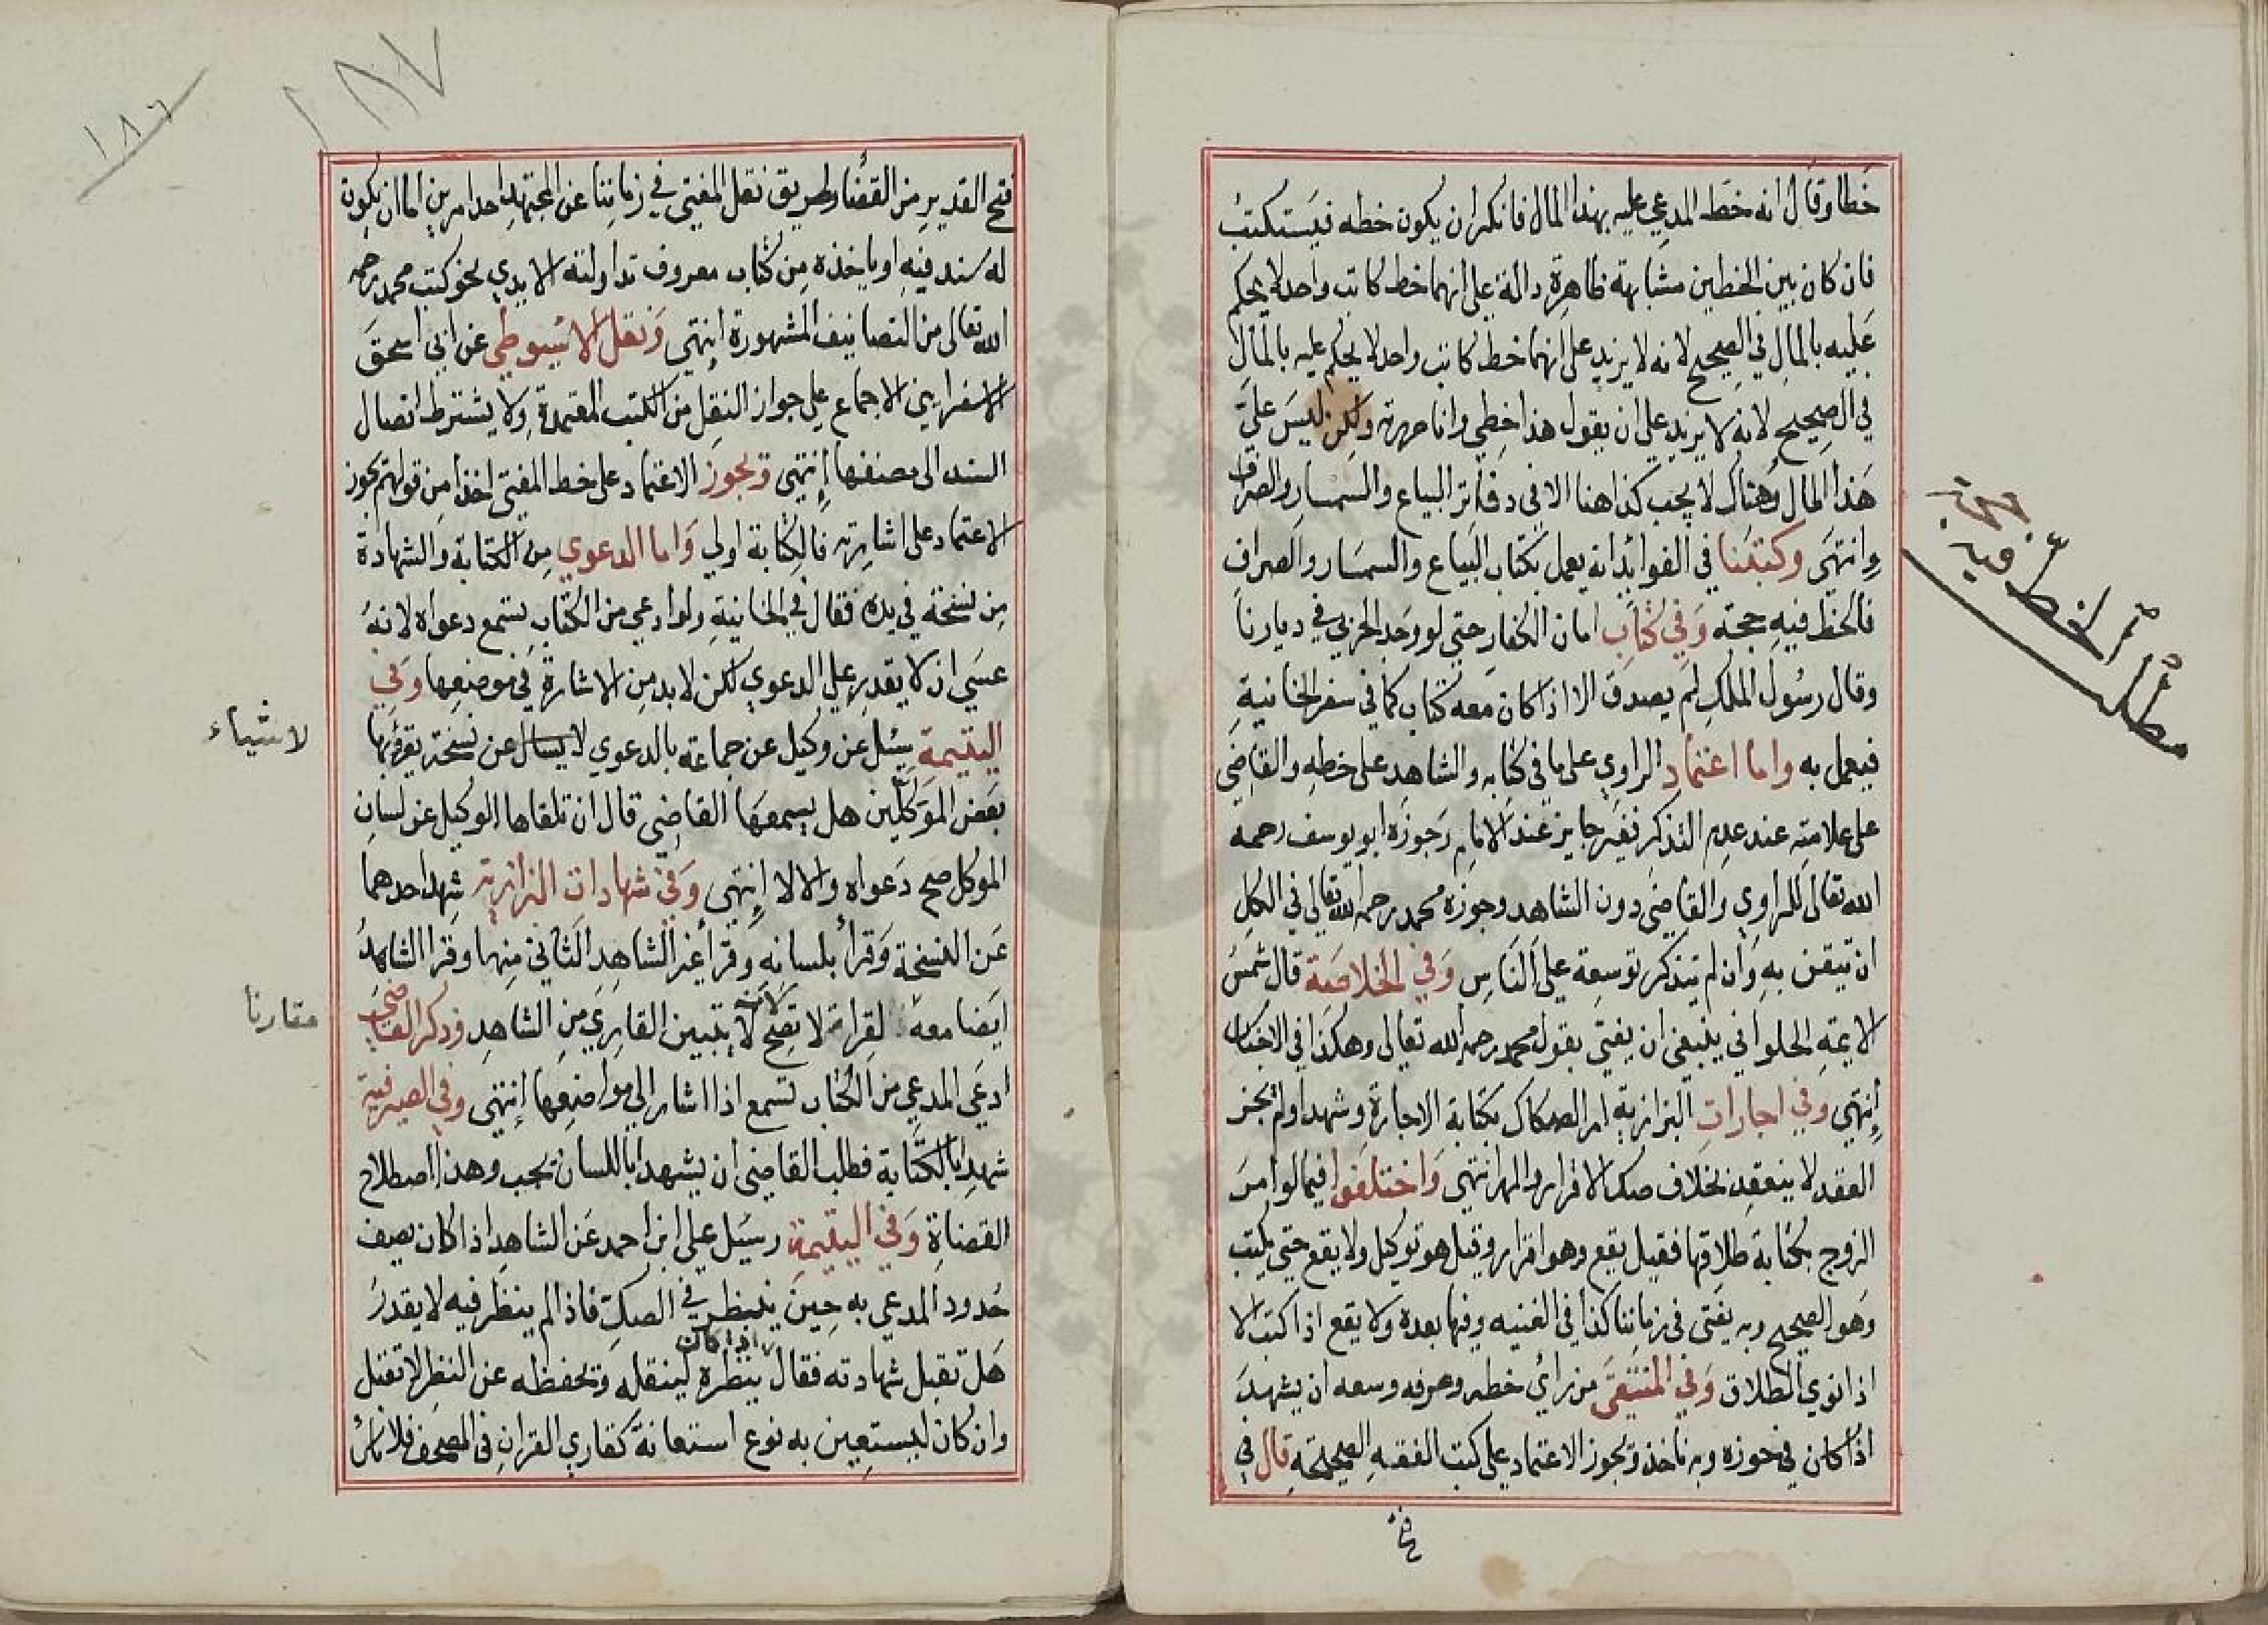 خطا وقال انه خط المدعي عليه بهذا المال فانكر ان يكون خطه فيستكتب
فان كان بين الخطين مشابهة ظاهرة دالة على انهما خط كاتب واحد لا يحكم
عليه بالمال في الصحيح لانه لا يزيد على انهما خط كاتب واحد لا يحكم عليه بالمال
في الصحيح لانه لا يزيد على ان يقول هذا خطي وانا حررته ولكن ليس علي
هذا المال وهناك لا يجب كذا هنا الا في دفاتر البياع والسمسار والصراف
وانتهى وكتبنا في الفوائد انه يعمل بكتاب البياع والسمسار والصراف
فالخط فيه حجة وفي كتاب امان الكفار حتى لو وجد الحربي في ديارنا
وقال رسول الملك لم يصدق الا اذا كان معه كتاب كما في سفر الخانية
فيعمل به واما اعتماد الراوي على ما في كتابه والشاهد على خطه والقاضي
على علامته عند عدم التذكر فغير جايز عند الامام وجوزه ابو يوسف رحمه
الله تعالى للراوي والقاضي دون الشاهد وجوزه محمد رحمه الله تعالى في الكل
ان تيقن به وان لم يتذكر توسعة على الناس وفي الخلاصة قال شمس
الايمة الحلواني ينبغي ان يفتى بقول محمد رحمه الله تعالى وهكذا في الاجناس
انتهى وفي اجارات البزازية امر الصكاك بكتابة الاجارة وشهدا ولم يجز
العقد لا ينعقد بخلاف صك الاقرار والمهر انتهى واختلفوا فيما لو امر
الزوج بكتابة طلاقها فقيل يقع وهو اقرار وقيل هو توكيل ولا يقع حتى يكتب
وهو الصحيح وبه يفتى في زماننا كذا في القنيه وفيها بعده ولا يقع اذا كتب الا
اذا نوي الطلاق وفي المنتقى من راي خطه وعرفه وسعه ان يشهد
اذا كان في حوزه وبه ناخذ ويجوز الاعتماد على كتب الفقه الصحيحة قال في
مطلب الخط فيه حجة
فتح
فتح القدير من القضا وطريق نقل المفتي في زماننا عن المجتهد احد امرين اما ان يكون
له سند فيه او ياخذه من كتاب معروف تداولته الايدي نحو كتب محمد رحمه
الله تعالى من التصانيف المشهورة انتهى ونقل الاسيوطي عن ابي اسحق
الاسفرايني الاجماع على جواز النقل من الكتب المعتمدة ولا يشترط اتصال
السند الى مصنفها انتهى ويجوز الاعتماد على خط المفتي اخذا من قولهم يجوز
الاعتماد على اشارته فالكتابة اولى واما الدعوي من الكتابة والشهادة
من نسخة في يده فقال في الخانية ولو ادعي من الكتاب تسمع دعواه لانه
عسي ان لا يقدر على الدعوي لكن لا بد من الاشارة في موضعها وفي
اليتيمة سئل عن وكيل عن جماعة بالدعوي لا يسال عن نسخة يقرؤها
بعض الموكلين هل يسمعها القاضي قال ان تلقاها الوكيل عن لسان
الموكل صح دعواه والا لا انتهى وفي شهادات البزازية شهد احدهما
عن النسخة وقرأ بلسانه وقرأ غير الشاهد الثاني منها وقرا الشاهد
ايضا معه لقراءته لا تصح لانه لا يتبين القاري من الشاهد وذكر القاضي
ادعى المدعي من الكتاب تسمع اذا اشار الى مواضعها انتهى وفي الصيرفية
شهدا بالكتابة فطلب القاضي ان يشهدا باللسان يجب وهذا اصطلاح
القضاة وفي اليتيمة وسئل علي ابن احمد عن الشاهد اذا كان يصف
حدود المدعي به حين ينظر في الصك فاذا لم ينظر فيه لا يقدر
هل تقبل شهادته فقال اذا كان ينظره لينقله ويحفظه عن النظر لا تقبل
وان كان ليستعين به نوع استعانة كقاري القران في المصحف فلا باس
لاشياء
مقارنا
١٨٧
١٨٦